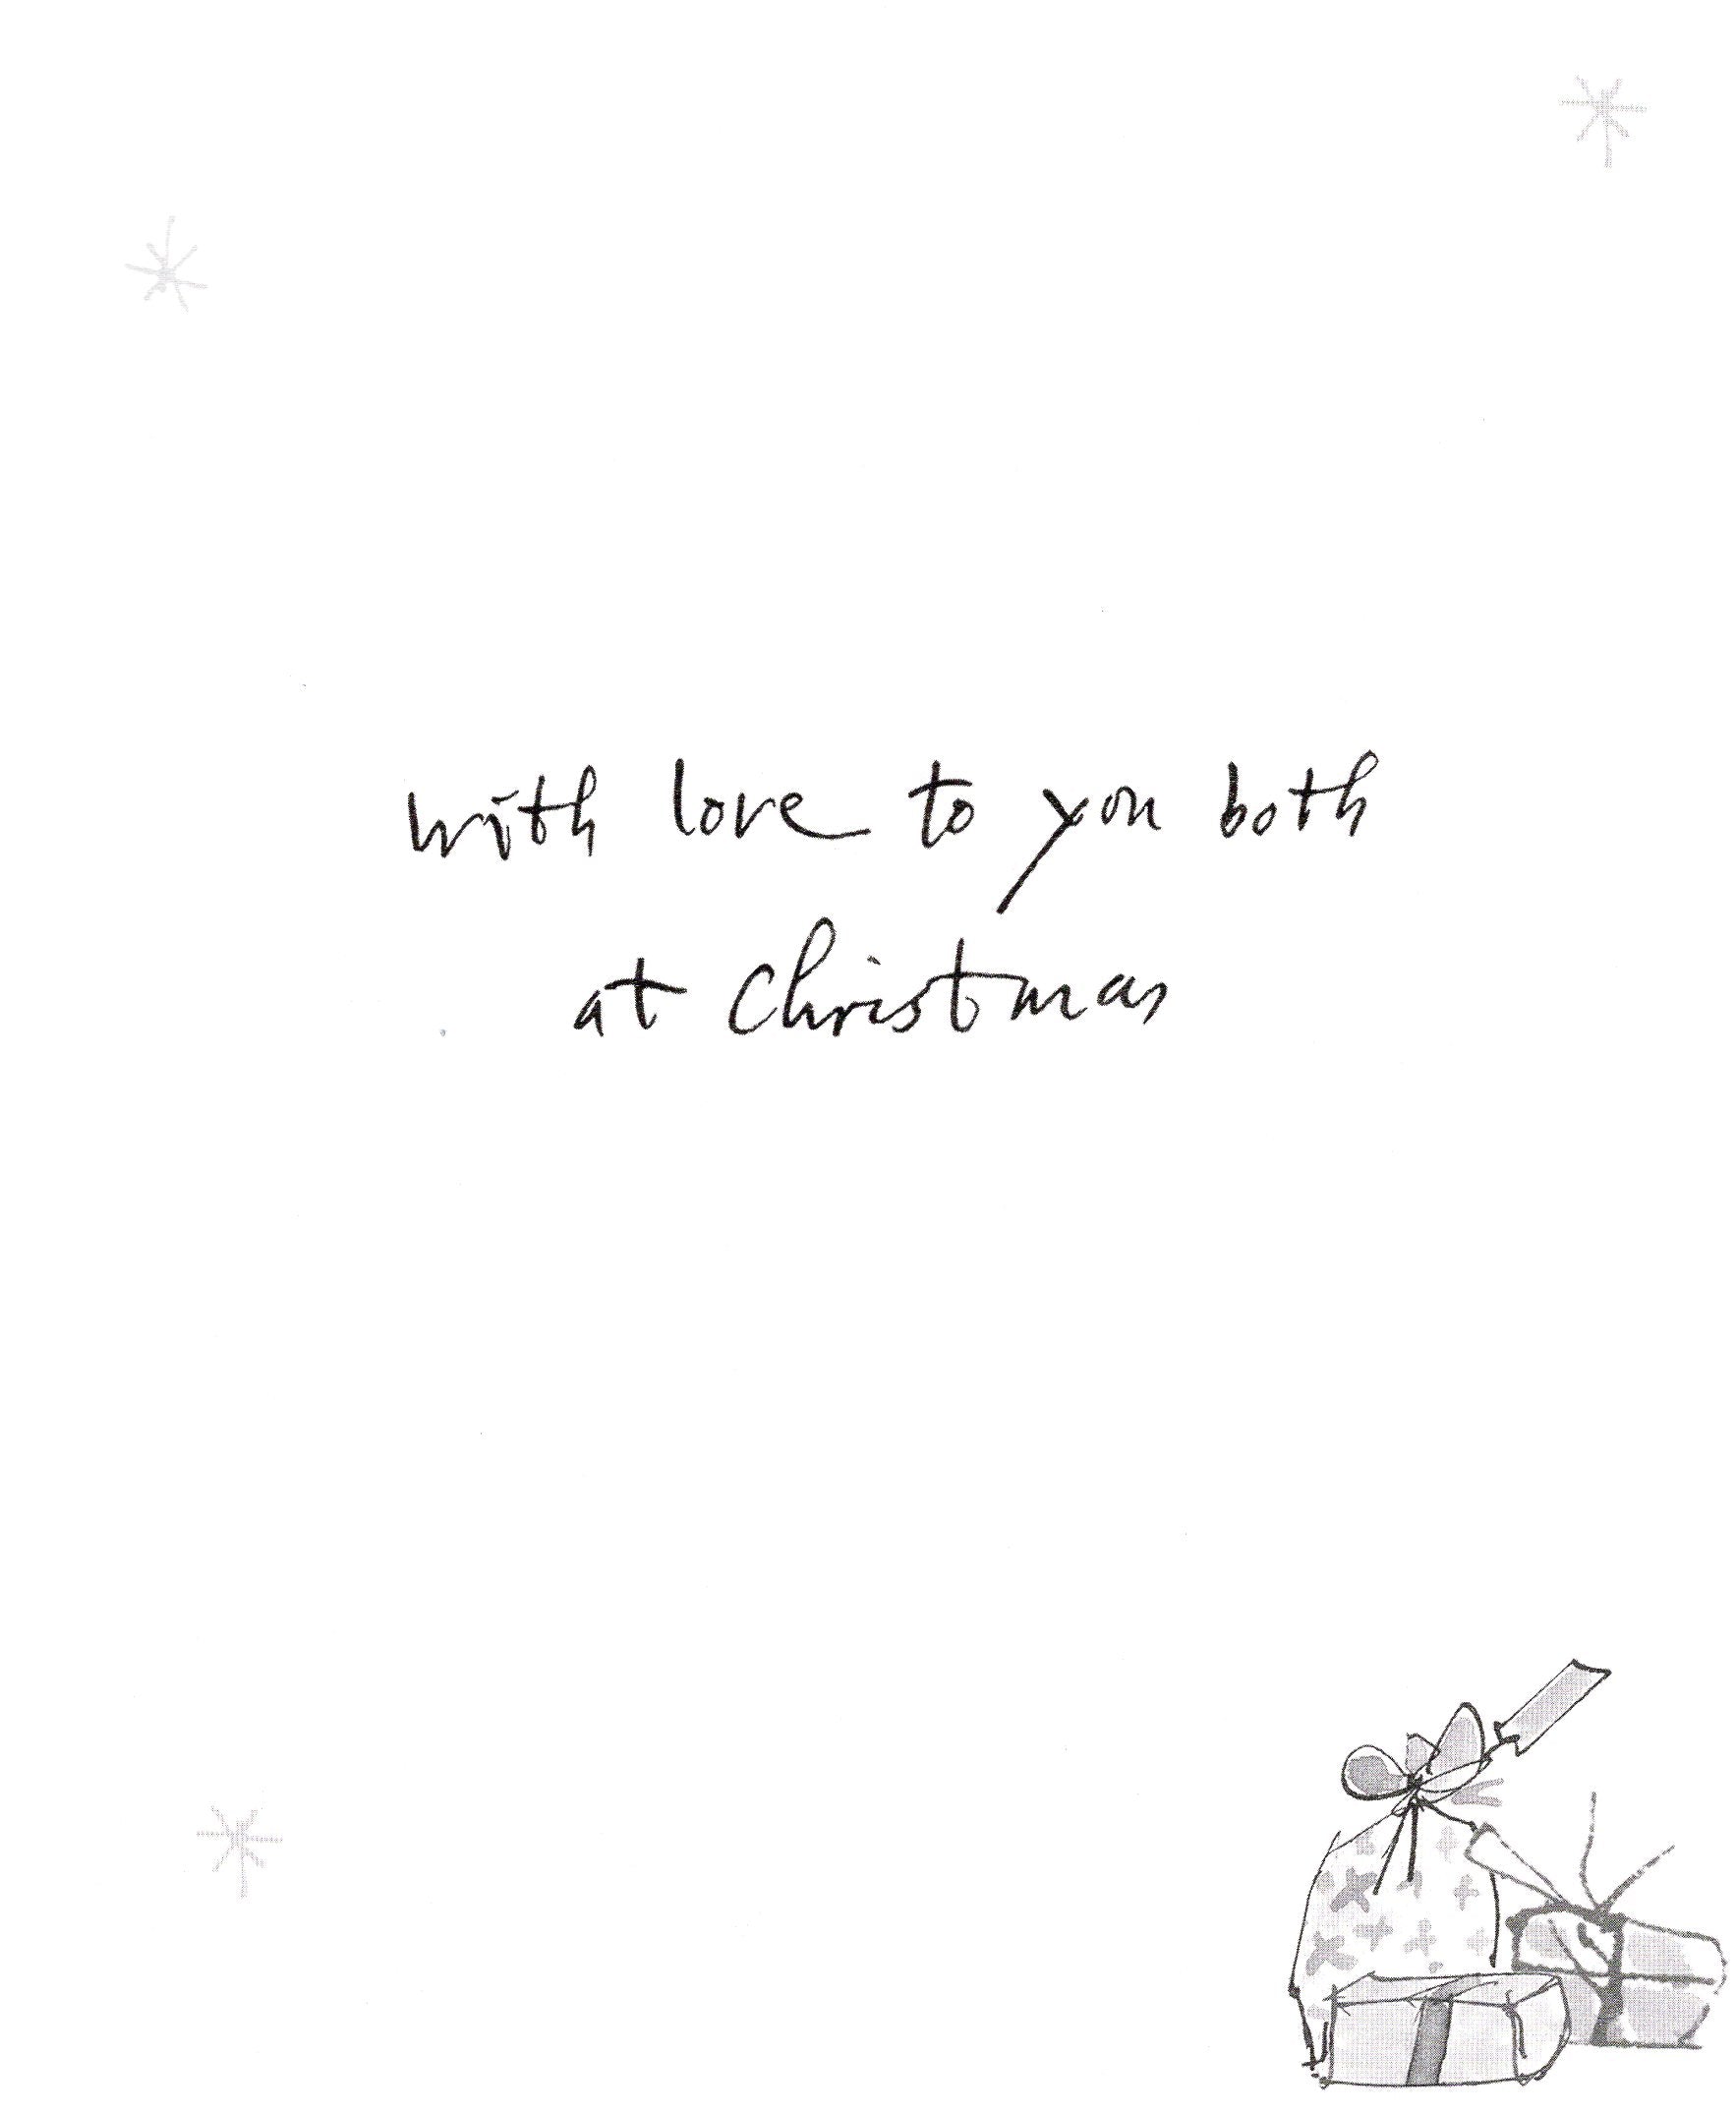 with love to you both
at Christmas